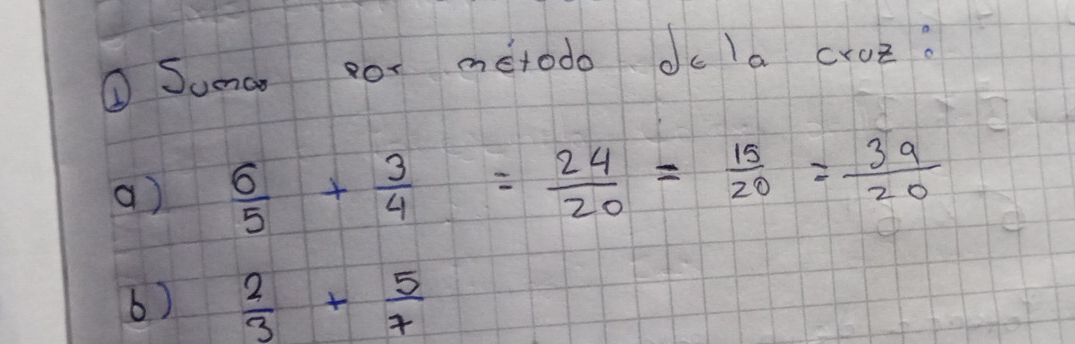 ① Sumar por método de la cruz:
a) 6/5 + 3/4 = 24/20 = 15/20 = 39/20
b) 2/3 + 5/7